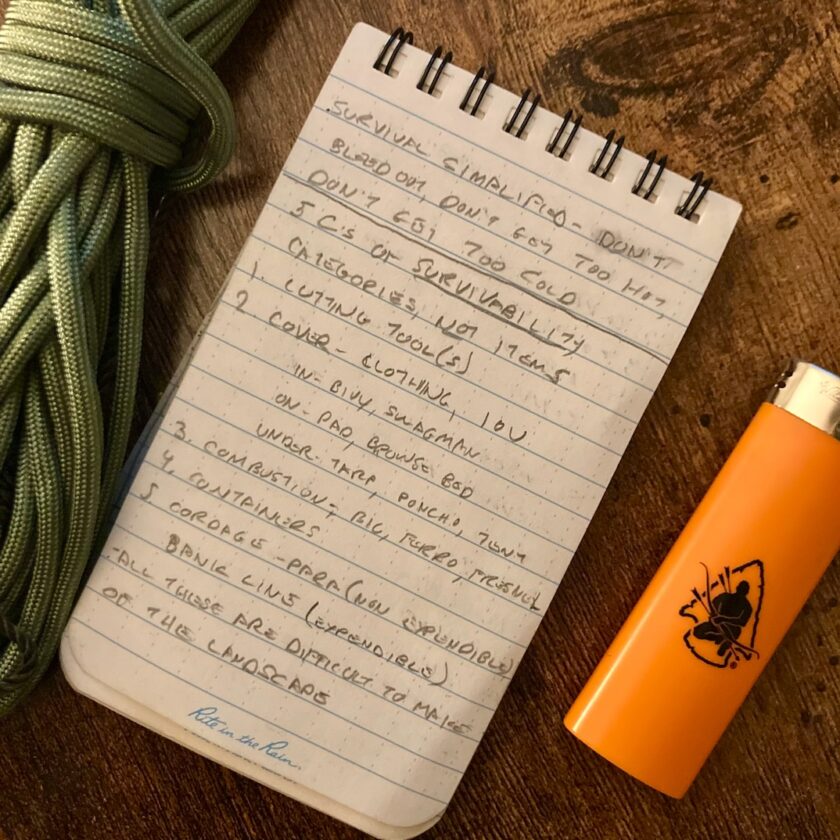 SURVIVAL SIMPLIFIED - DON'T
BLEED OUT, DON'T GET TOO HOT,
DON'T GET TOO COLD
5 C'S OF SURVIVABILITY
CATEGORIES, NOT ITEMS
1. CUTTING TOOL(S)
2 COVER - CLOTHING, IOU
IN - BIVY, SWAGMAN
ON - PAD, BROWSE BED
UNDER - TARP, PONCHO, TENT
3. COMBUSTION; BIC, FERRO, FRESNEL
4. CONTAINERS
5. CORDAGE - PARA (NON EXPENDIBLE)
BANK LINE (EXPENDIBLE)
-ALL THESE ARE DIFFICULT TO MAKE
OF THE LANDSCAPE
Rite in the Rain